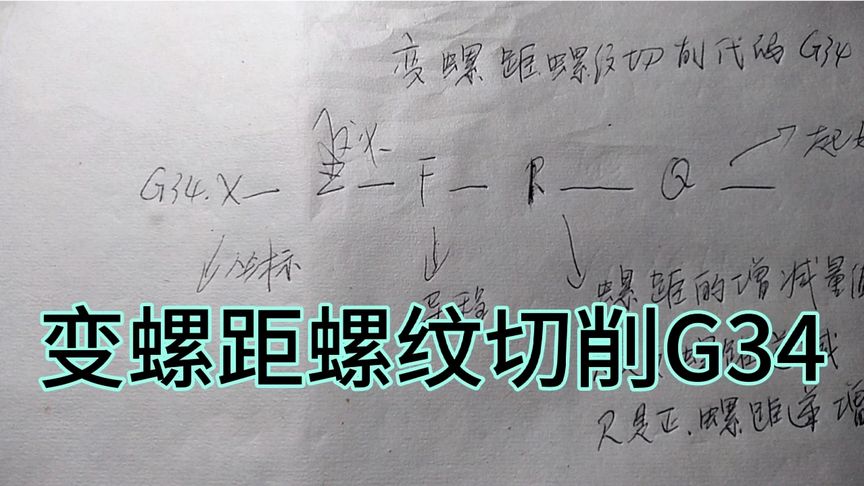 变螺距螺纹切削代码 G34
G34.X— Z— F— R— Q—
坐标
导程
螺距的增减量
变螺距螺纹切削G34
R是正.螺距递增